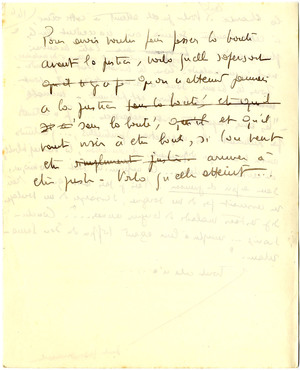 Pour avoir voulu faire passer la bonté
avant la justice, voilà qu'elle s'aperçoit
qu'il n'y a p qu'on n'atteint jamais
à la justice sans la bonté, et qu'il
sans la bonté, qu'il et qu'il
vaut mieux être bon, si l'on veut
être simplement juste arriver à
être juste - Voilà qu'elle atteint...